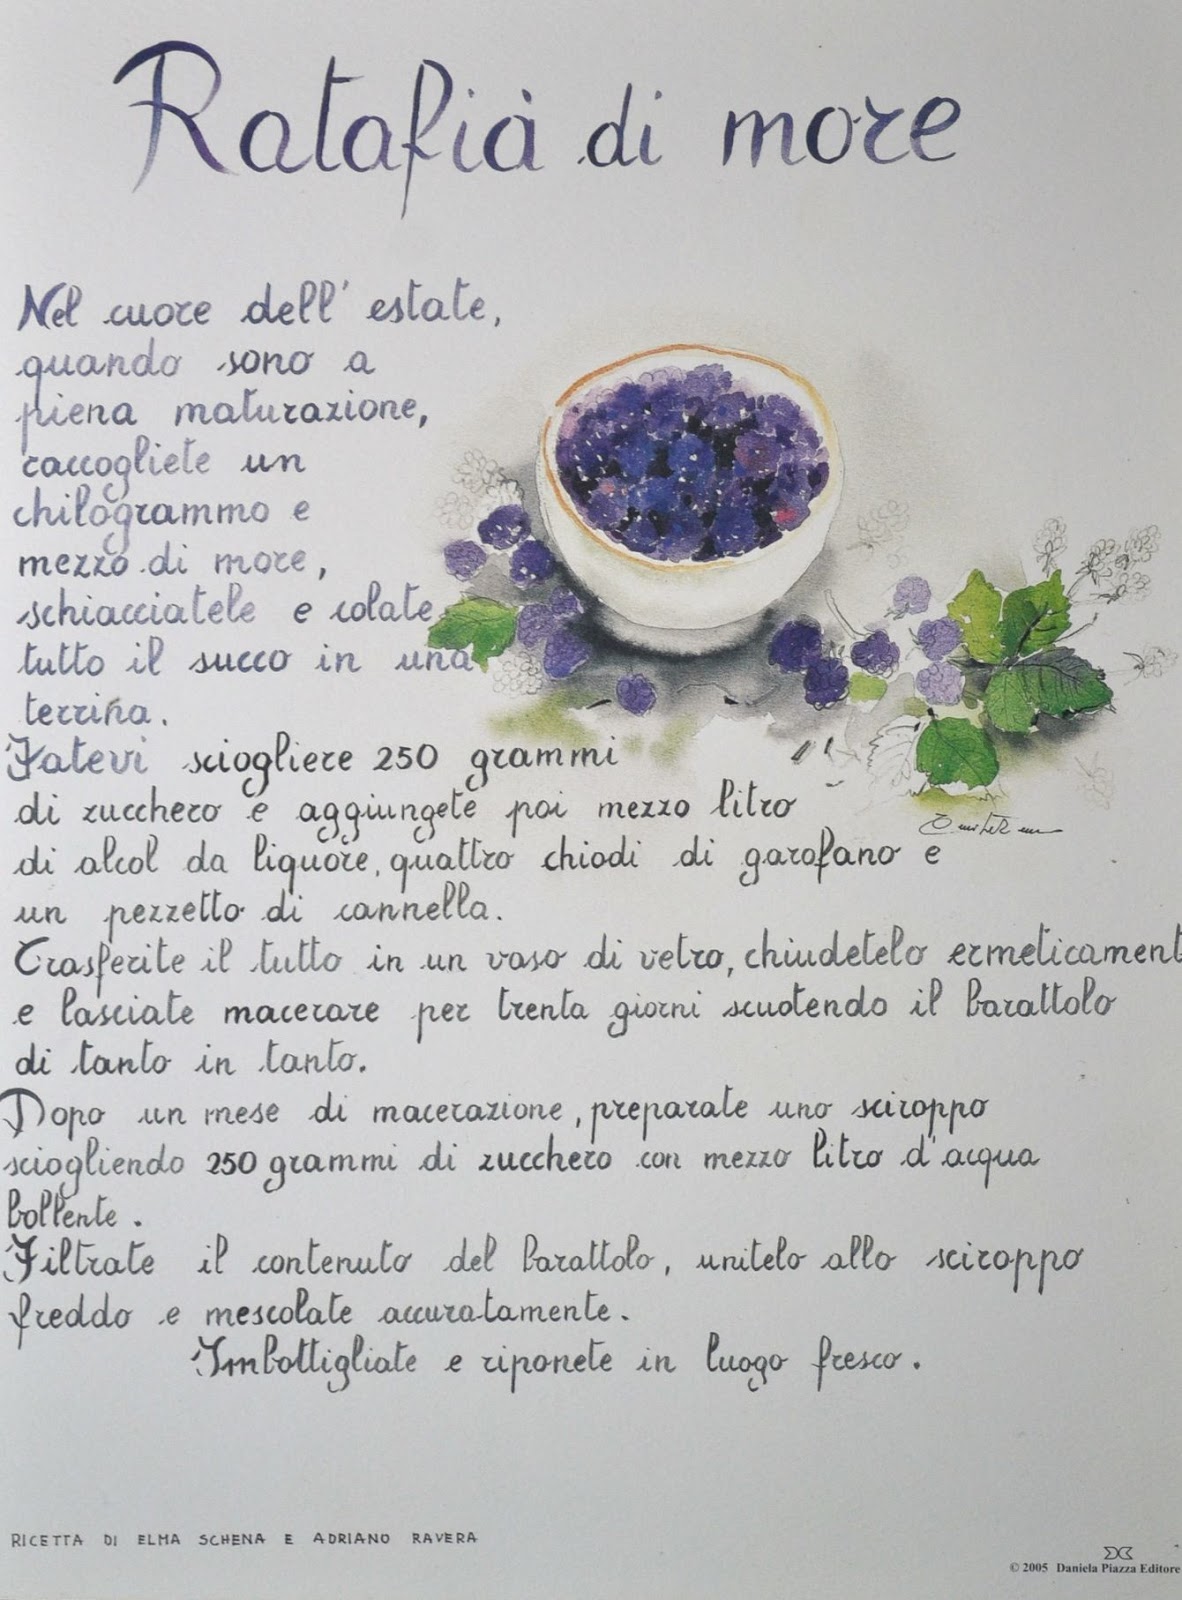 Ratafià di more
Nel cuore dell' estate,
quando sono a
piena maturazione,
raccogliete un
chilogrammo e
mezzo di more,
schiacciatele e colate
tutto il succo in una
terrina.
Fatevi sciogliere 250 grammi
di zucchero e aggiungete poi mezzo litro
di alcol da liquore, quattro chiodi di garofano e
un pezzetto di cannella.
Trasferite il tutto in un vaso di vetro, chiudetelo ermeticament
e lasciate macerare per trenta giorni scuotendo il barattolo
di tanto in tanto.
Dopo un mese di macerazione, preparate uno sciroppo
sciogliendo 250 grammi di zucchero con mezzo litro d'acqua
bollente.
Filtrate il contenuto del barattolo, unitelo allo sciroppo
freddo e mescolate accuratamente.
Imbottigliate e riponete in luogo fresco.
RICETTA DI ELMA SCHENA E ADRIANO RAVERA
© 2005 Daniela Piazza Editore